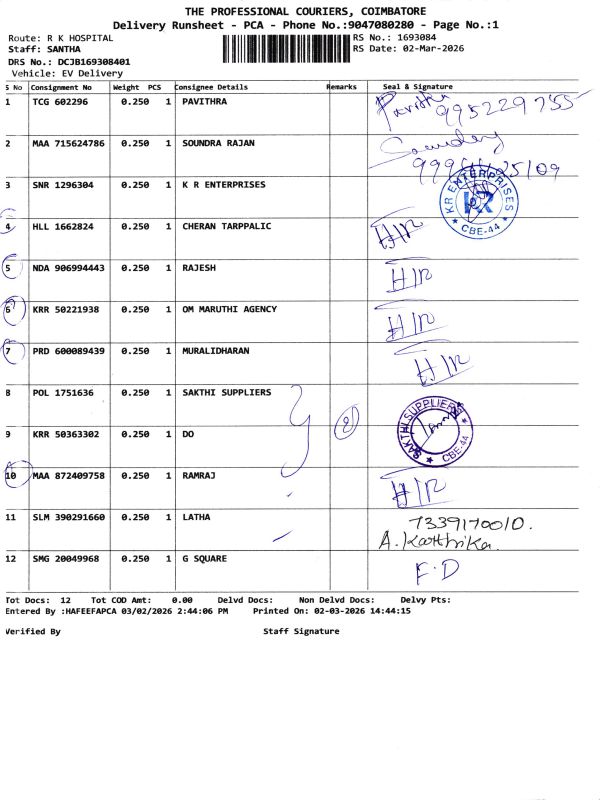 THE PROFESSIONAL COURIERS, COIMBATORE
Delivery Runsheet - PCA - Phone No.:9047080280 - Page No.:1
Route: R K HOSPITAL
RS No.: 1693084
Staff: SANTHA
RS Date: 02-Mar-2026
DRS No.: DCJB169308401
Vehicle: EV Delivery
S No Consignment No Weight PCS Consignee Details Remarks Seal & Signature
1 TCG 602296 0.250 1 PAVITHRA Pavithra 995229755
2 MAA 715624786 0.250 1 SOUNDRA RAJAN
3 SNR 1296304 0.250 1 K R ENTERPRISES KR ENTERPRISES KR ★ CBE-44 ★
4 HLL 1662824 0.250 1 CHERAN TARPPALIC H/R
5 NDA 906994443 0.250 1 RAJESH H/R
6 KRR 50221938 0.250 1 OM MARUTHI AGENCY H/R
7 PRD 600089439 0.250 1 MURALIDHARAN H/R
8 POL 1751636 0.250 1 SAKTHI SUPPLIERS SAKTHI SUPPLIERS ★ CBE-44 ★
9 KRR 50363302 0.250 1 DO 2
10 MAA 872409758 0.250 1 RAMRAJ H/R
11 SLM 390291660 0.250 1 LATHA 7339170010.
A. Karthika.
12 SMG 20049968 0.250 1 G SQUARE F.D
Tot Docs: 12 Tot COD Amt: 0.00 Delvd Docs: Non Delvd Docs: Delvy Pts:
Entered By :HAFEEFAPCA 03/02/2026 2:44:06 PM Printed On: 02-03-2026 14:44:15
Verified By Staff Signature